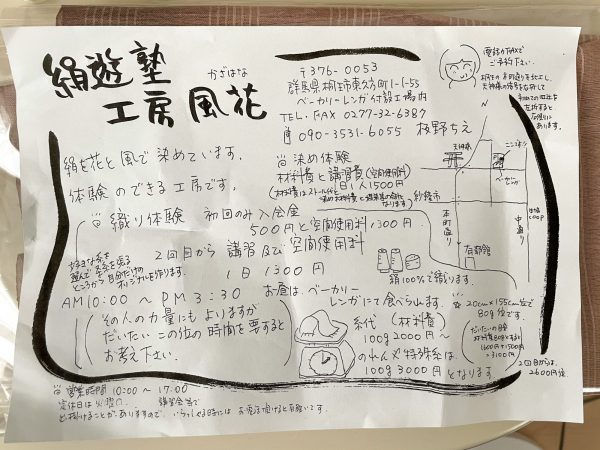 絹遊塾
工房 風花
かざはな
〒376-0053
群馬県桐生市東久方町1-1-55
ベーカリーレンガ付設工場内
TEL.FAX 0277-32-6387
090-3531-6055 板野ちえ
電話かFAXで
ご予約下さい。
絹を花と風で染めています。
体験のできる工房です。
染め体験
材料費と講習費(空間使用料)
1日1人1500円
織り体験 初回のみ入会金
500円と空間使用料1300円
2回目から 講習及び空間使用料
1日 1300円
好きな糸を
選んで
ところから自分だけの
オリジナルを作ります。
AM10:00 ~ PM3:30 お昼は、ベーカリー
レンガにて食べられます。
その人の力量にもよりますが
だいたいこの位の時間を要すると
お考え下さい。
天満宮
ベーカリー
レンガ
紗綾市
本町通り
中通り
有鄰館
COOP
絹100%で織ります。
☆20cm×155cm位で
80g位です。
糸代 (材料費)
100g 2000円~
のれん〆特殊糸は
100g 3000円 となります。
だいたいの目安
1600円+1500円
=3100円
2回目からは、
2600円位
営業時間 10:00 ~ 17:00
定休日は火曜日。 講習会等で
出掛けることがありますので、いらっしゃる時にはお電話頂けると有難いです。